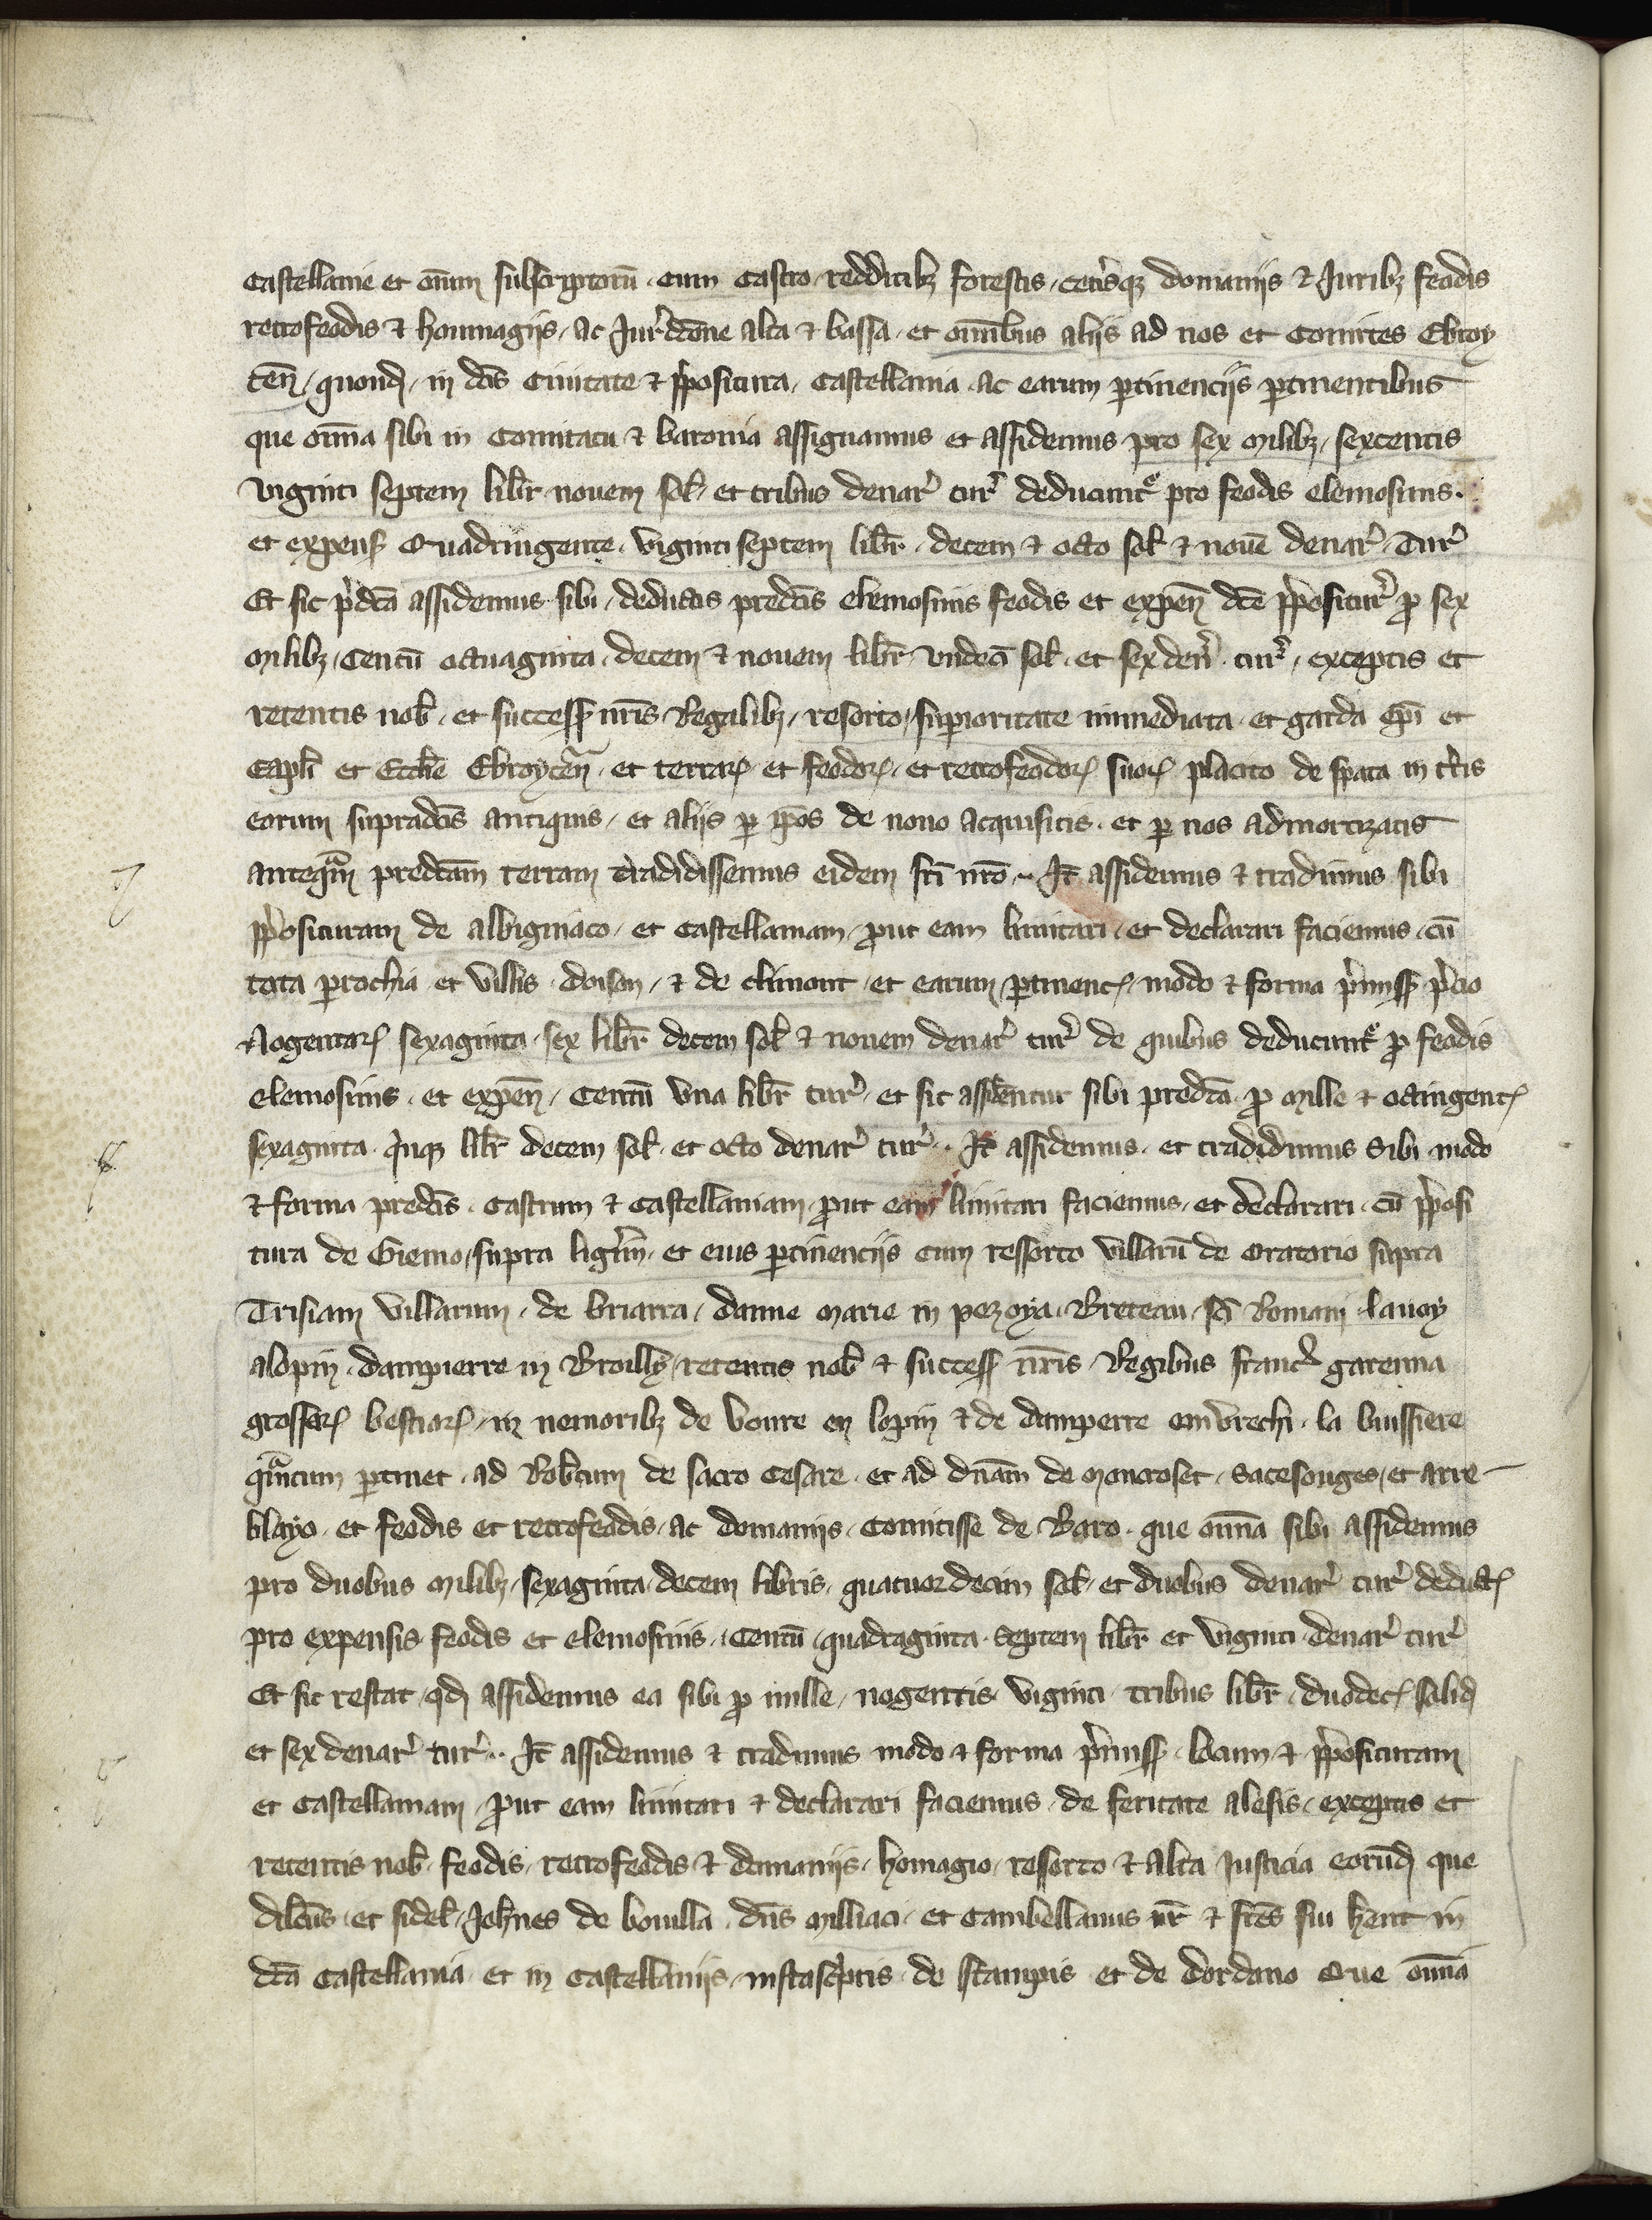 castellanie et om̄ium subscriptorū . cum castro redditib3 forestis . cet̾isq3 domaniis & Juribz feodis
retrofeodis & hommagiis . ac Jur̾dc̄one alta & bassa . et om̄ibus aliis ad nos et Comites Ebroy
ceñ . quond̄ . in dc̄is Ciuitate & p̾positura . Castellania . ac earum ꝑtinenciis ꝑtinentibus
que om̄ia sibi in Comitatu & baronia assignamus et assidemus pro sex Milibz . sexcentis
viginti septem libr̄ nouem sol̄ . et tribus denar̾ tur̾ deducunt᷑ pro feodis elemosinis .
et expens̄ Quadringente . viginti septem libr̄ . decem & octo sol̄ & noūe denar̾ . Tur̾
Et sic p̾dc̄a assidemus sibi . deductis predc̄is elemosinis feodis et expeñ dc̄e p̾positur̾ ꝓ sex
milibz . Centū octuaginta . decem & nouem libr̄ . vndeci̅ sol̄ . et sex den̾ . tur̾ . exceptis et
retentis nob̄ . et success̄ nr̄is Regalibz . resorto . suꝑioritate immediata . et garda ep̄i et
Capl̄i et Eccl̄ie Ebroyceñ . et terraꝝ et feodoꝝ . et retrofeodoꝝ suoꝝ placito de spata in t̾ris
eorum supradc̄is antiquis . et aliis ꝑ ip̄os de nouo acquisitis . et ꝑ nos admortizatis
anteq̃m predc̄am terram tradidissemus eidem fr̄i nr̄o . It̄ assidemus & tradimus sibi
p̾posituram de albigniaco . et castellaniam . ꝓut eam limitari . et declarari faciemus . cū
tota ꝑrochia et villis . doison . & de climont . et earum ꝑtinenc̄ . modo & forma p̾miss̄ p̾cio
Nogentaꝝ sexaginta . sex libr̄ decem sol̄ & nouem denar̾ tur̾ de quibus deducunt᷑ ꝓ feodis
elemosinis . et expeñ . Centū vna libr̄ tur̾ . et sic assidentur sibi predc̄a . ꝓ Mille & octingent̄
sexaginta . q̾nq3 libr̄ decem sol̄ . et octo denar̾ tur̾ . It̄ assidemus . et tradidimus Sibi modo
& forma predc̄is . Castrum & castellaniam . ꝓut eam limitari faciemus . et declarari . cū p̾posi
tura de Giemo . supra lig̾im . et eius ꝑtinenciis cum ressorto villarū de oratorio supra
Trisiam villarum . de briarra . danne Marie in pezoya . Breteau . sc̄i Romani . lauoy
alopin . dampierre in Broilly . retentis nob̄ & success̄ nr̄is Regibus franc̾ garenna
grossaꝝ bestiaꝝ . in nemoribz de voure en lopin & de damperre ombrechi . la buissiere
q̃ntum ꝑtinet . ad Rob̄tum de sacro Cesare . et ad dn̄am de montroset . Sacesonges . et arre
blayo . et feodis et retrofeodis . ac domaniis . Comitisse de Baro . que om̄ia sibi assidemus
pro duobus Milibz . sexaginta . decem libris . quatuordecim sol̄ . et duobus denar̾ tur̾ deduct̄
pro expensis feodis et elemosinis . Centū . quadraginta . septem libr̄ et viginti . denar̾ tur̾
Et sic restat . qd̄ assidemus ea sibi ꝓ mille . nogentis viginti . tribus libr̄ . duodec̄ solid̄
et sex denar̾ tur̾ . It̄ assidemus & tradimus modo & forma p̾miss̄ . locum & p̾posituram
et castellaniam . ꝓut eam limitari & declarari faciemus . de feritate alesis . exceptis et
retentis nob̄ . feodis . retrofeodis & domaniis . homagio . ressorto & alta Justicia eorūd̄ que
dilc̄us . et fidel̄ . Joh̄nes de bouilla . dn̄s Milliaci . et Cambellanus nr̄ & fr̄es sui hent in
dc̄a Castellania . et in castellaniis . infrasc̾ptis . de Stampis et de dordano Que om̄ia